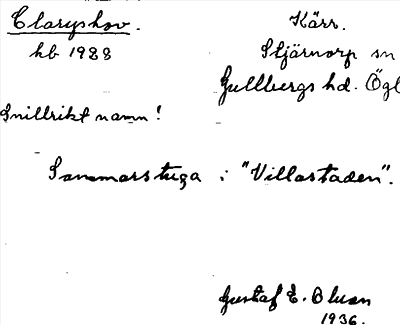 Claryskov.
Kärr.
hb 1988
Stjärnorp sn
Gullbergs hd. Ögl
Snillrikt namn!
Sommarstuga i "Villastaden".
Gustaf E. Olsson
1936.